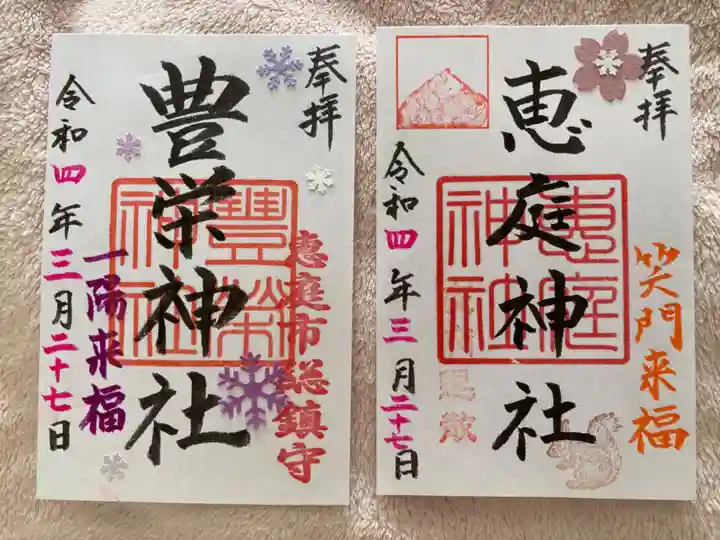 奉拝
恵庭神社
笑門来福
令和四年三月二十七日
恵庭神社
奉拝
豊栄神社
恵庭市総鎮守
豊榮神社
一陽来福
令和四年三月二十七日